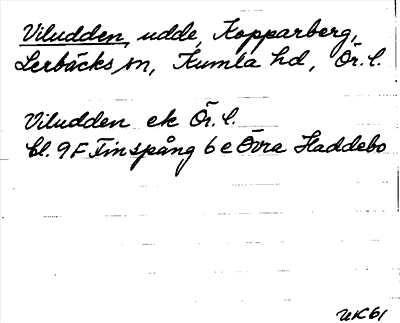 Viludden, udde, Kopparberg,
Lerbäcks sn, Kumla hd, Ör. l.
Viludden ek Ör. l.
bl. 9F Finspång 6 e Övre Haddebo
UK61